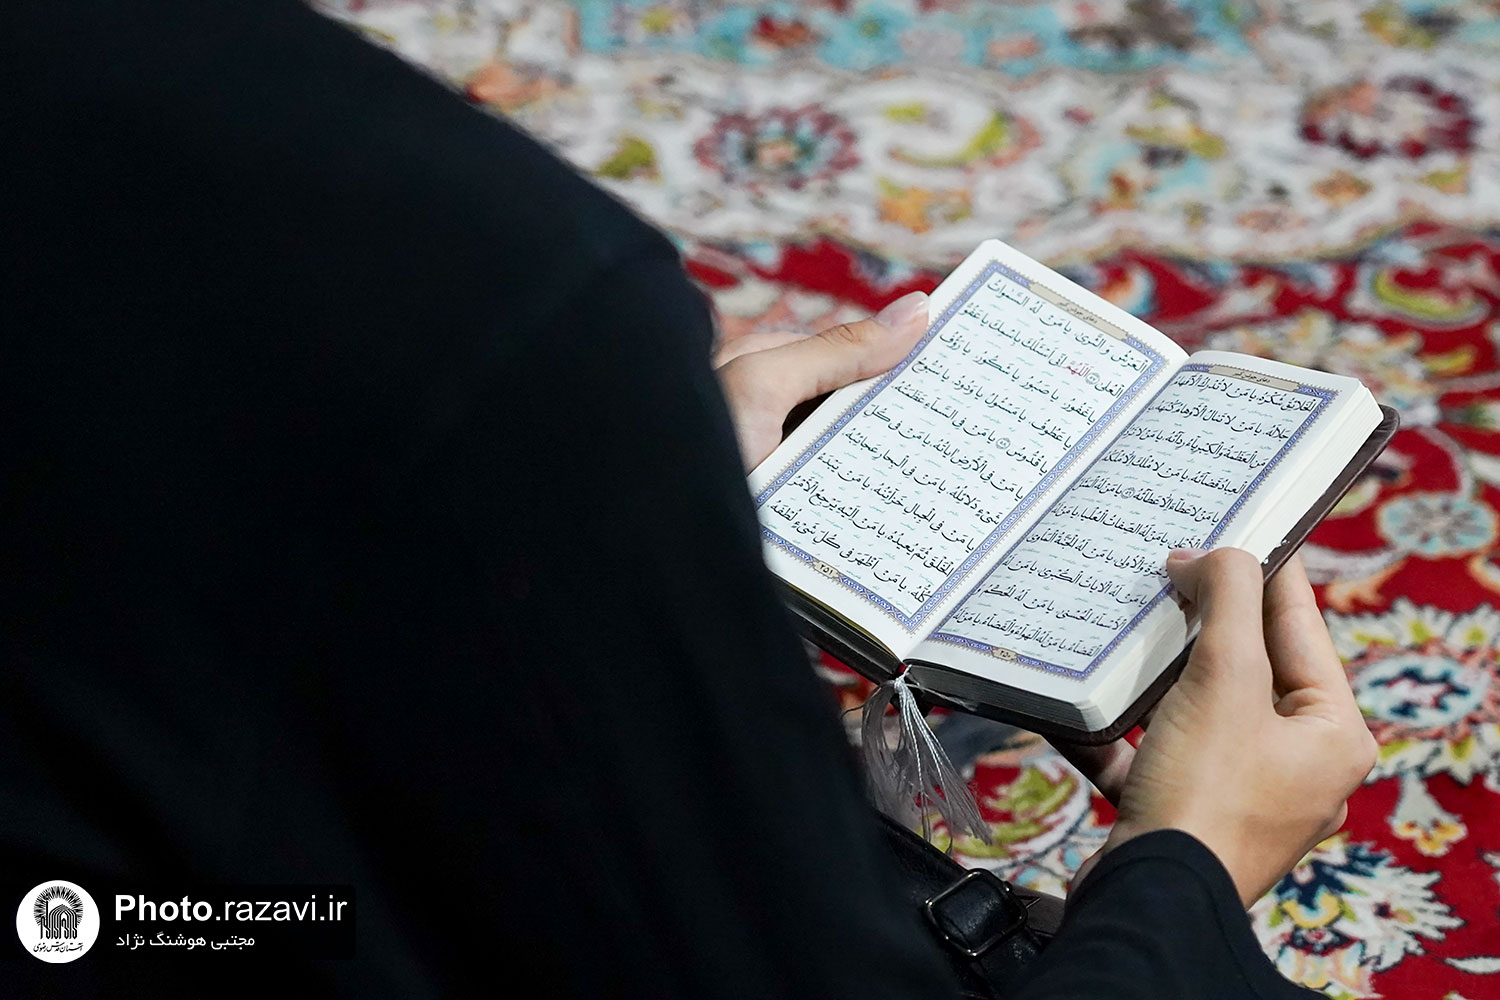 دعای جوشن کبیر
الْخَلَائِقُ شُكْرَهُ، يَا مَنْ لَا تُدْرِكُ الْأَفْهَامُ
جَلَالَهُ، يَا مَنْ لَا تَنَالُ الْأَوْهَامُ كُنْهَهُ، يَا
مَنِ الْعَظَمَةُ وَالْكِبْرِيَاءُ رِدَائُهُ، يَا مَنْ لَا تَرُدُّ
الْعِبَادُ قَضَائَهُ، يَا مَنْ لَا مُلْكَ اِلَّا مُلْكُهُ
يَا مَنْ لَا عَطَاءَ اِلَّا عَطَائُهُ، يَا مَنْ لَهُ الْمَثَلُ
الْأَعْلَى، يَا مَنْ لَهُ الصِّفَاتُ الْعُلْيَا، يَا مَنْ لَهُ
وَالْأُولَى، يَا مَنْ لَهُ الْجَنَّةُ الْمَأْوَى
يَا مَنْ لَهُ الْآيَاتُ الْكُبْرَى، يَا مَنْ لَهُ
الْأَسْمَاءُ الْحُسْنَى، يَا مَنْ لَهُ الْحُكْمُ وَ
الْقَضَاءُ، يَا مَنْ لَهُ الْهَوَاءُ وَالْفَضَاءُ، يَا مَنْ لَهُ
۲۵۰
دعای جوشن کبیر
الْعَرْشُ وَ الثَّرَى، يَا مَنْ لَهُ السَّمٰوَاتُ
الْعُلَى اَللّٰهُمَّ اِنِّى اَسْئَلُكَ بِاسْمِكَ يَا عَفُوُّ
يَا غَفُورُ، يَا صَبُورُ، يَا شَكُورُ، يَا رَؤُفُ
يَا عَطُوفُ، يَا مَسْئُولُ، يَا وَدُودُ، يَا سُبُّوحُ
يَا قُدُّوسُ يَا مَنْ فِى السَّمَاءِ عَظَمَتُهُ
يَا مَنْ فِى الْأَرْضِ اٰيَاتُهُ، يَا مَنْ فِى كُلِّ
شَىْءٍ دَلَائِلُهُ، يَا مَنْ فِى الْبِحَارِ عَجَائِبُهُ
يَا مَنْ فِى الْجِبَالِ خَزَائِنُهُ، يَا مَنْ يَبْدَءُ
الْخَلْقَ ثُمَّ يُعِيدُهُ، يَا مَنْ اِلَيْهِ يَرْجِعُ الْأَمْرُ
كُلُّهُ، يَا مَنْ اَظْهَرَ فِى كُلِّ شَىْءٍ لُطْفَهُ
۲۵۱
Photo.razavi.ir
مجتبی هوشنگ نژاد
آستان قدس رضوی